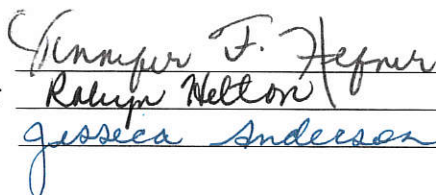 Jennifer F. Hefner
Robyn Helton
Jessica Anderson